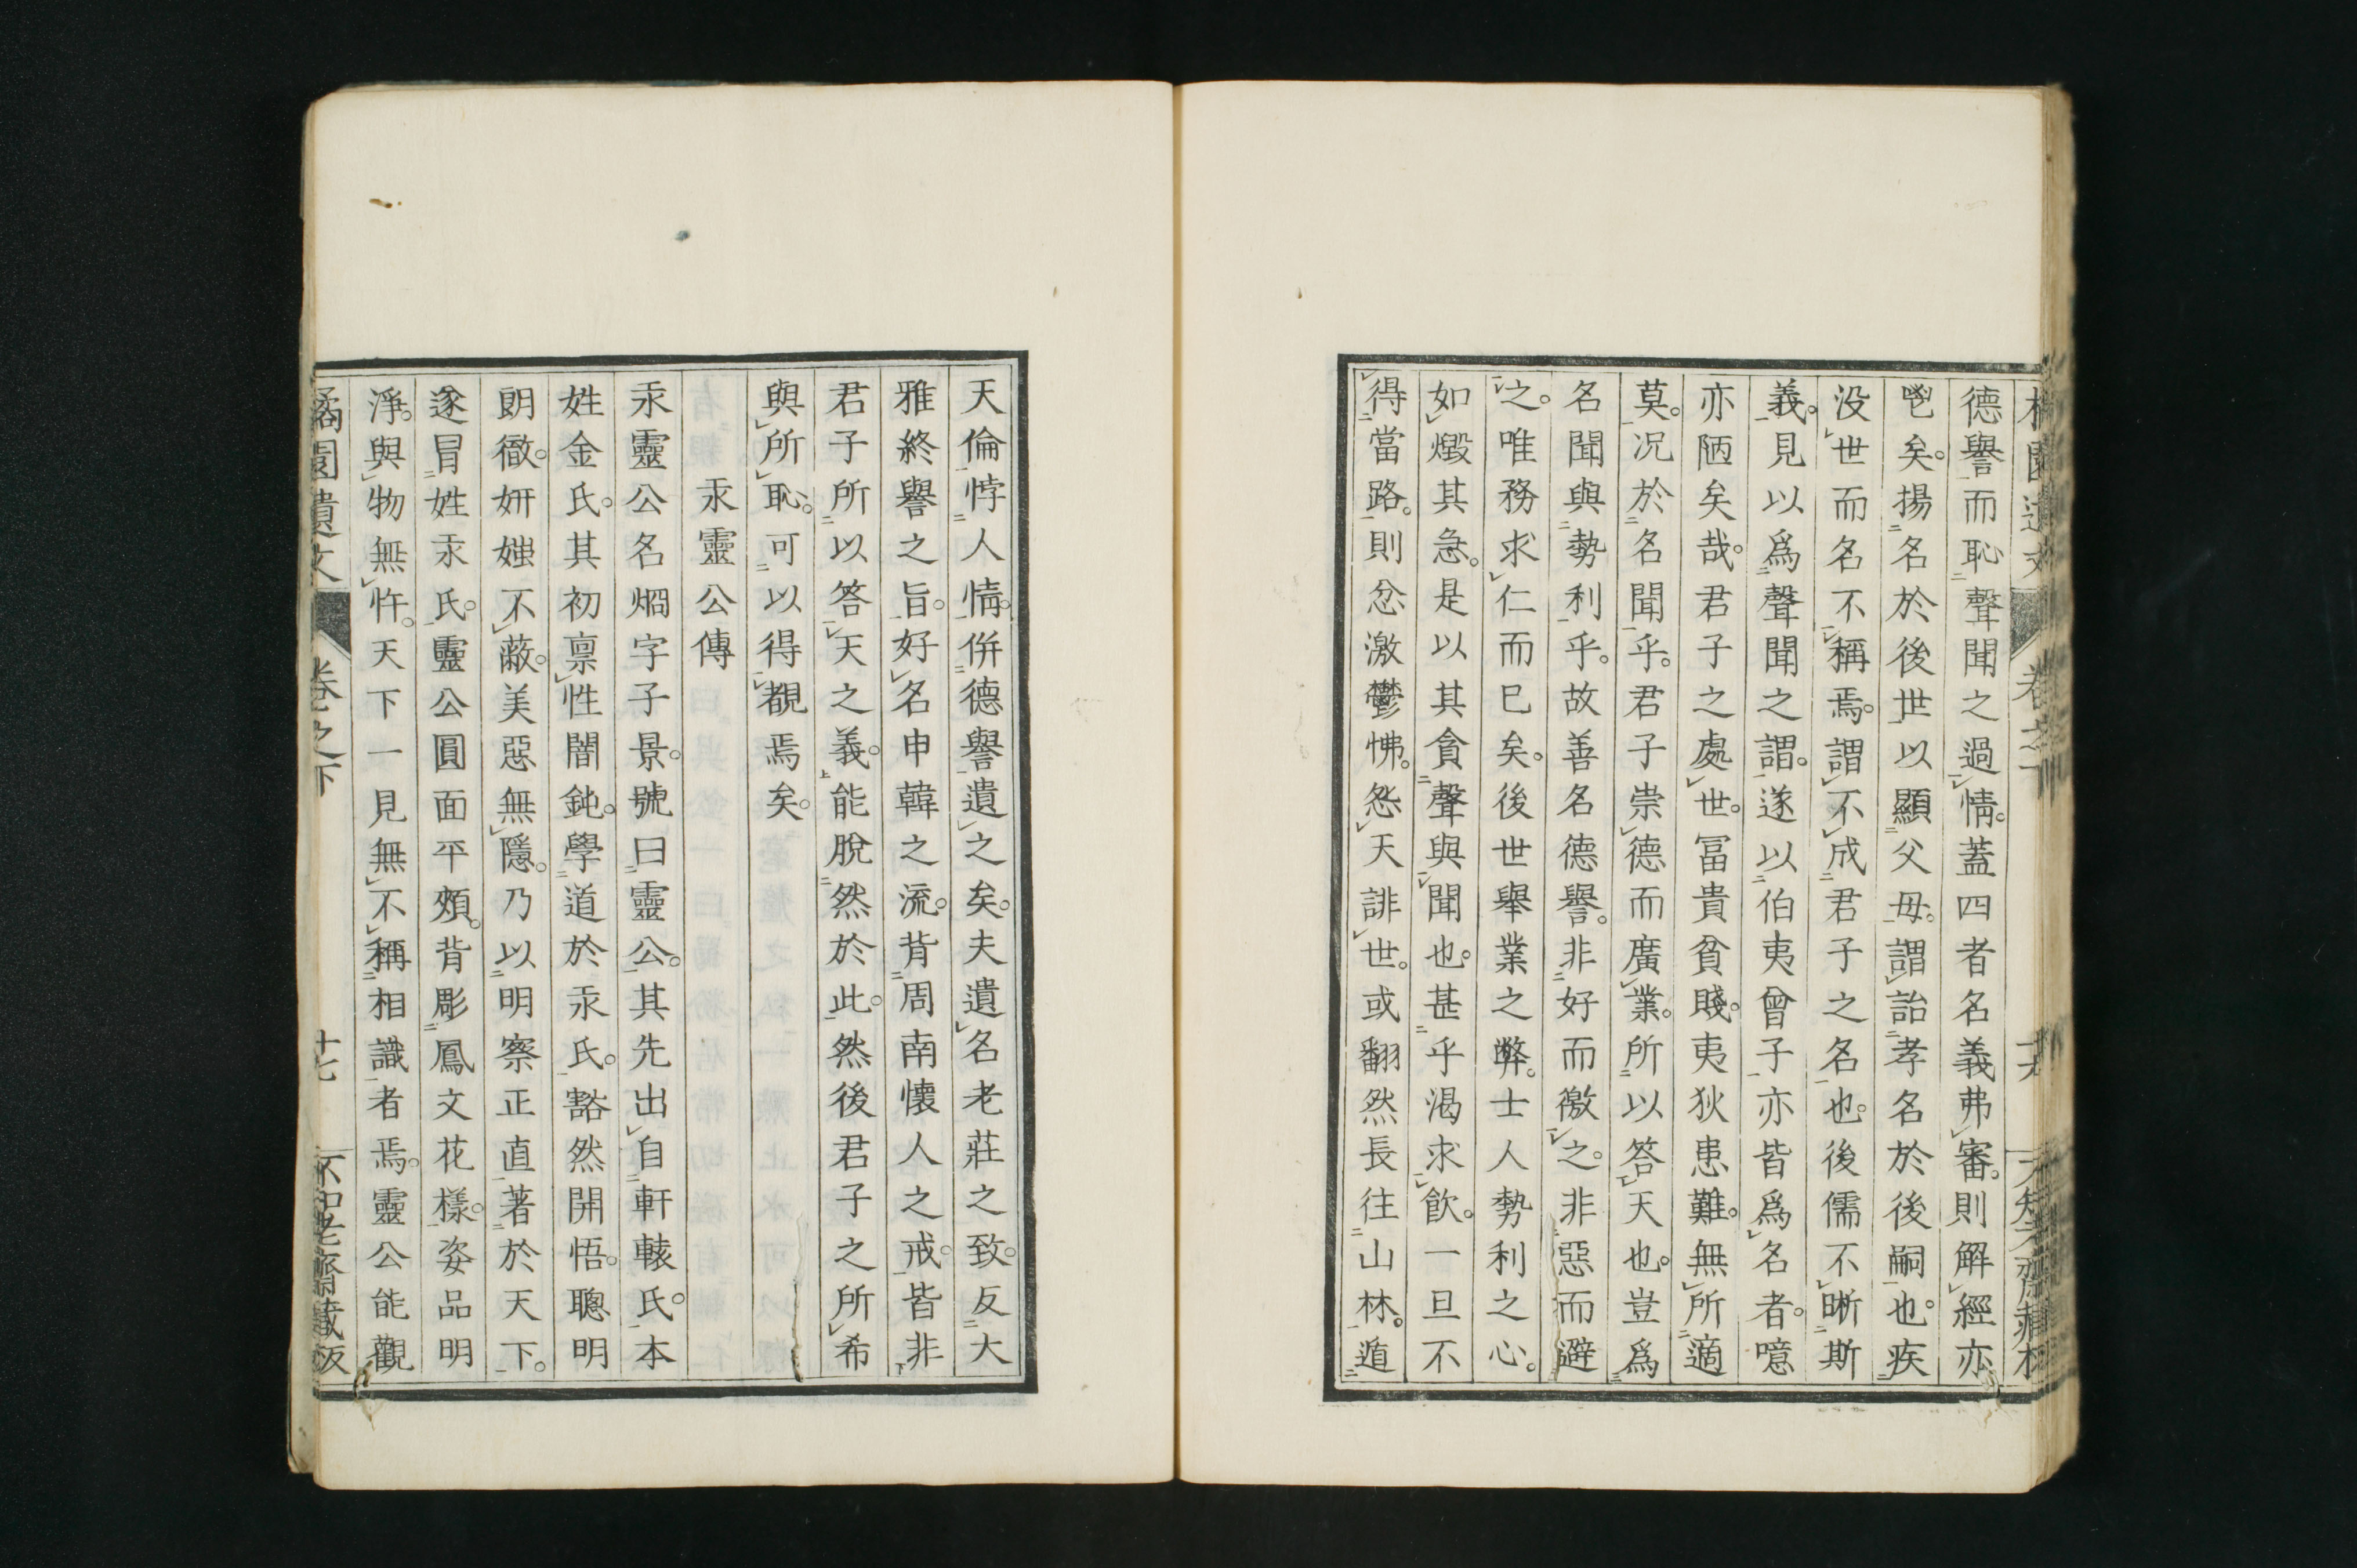 德譽而恥聲聞之過情。蓋四者名義弗審。則解經亦
鬯矣。揚名於後世以顯父母。謂詒孝名於後嗣也。疾
没世而名不稱焉。謂不成君子之名也。後儒不晰斯
義。見以爲聲聞之謂。遂以伯夷曾子亦皆爲名者。噫
亦陋矣哉。君子之處世。冨貴貧賤。夷狄患難。無所適
莫。况於名聞乎。君子崇德而廣業。所以答天也。豈爲
名聞與勢利乎。故善名德譽。非好而徼之。非惡而避
之。唯務求仁而已矣。後世舉業之弊。士人勢利之心。
如燬其急。是以其貪聲與聞也。甚乎渴求飲。一旦不
得當路。則忿激鬱怫。怨天誹世。或翻然長往山林。遁
天倫悖人情。併德譽遺之矣。夫遺名老莊之致。反大
雅終譽之旨。好名申韓之流。背周南懷人之戒。皆非
君子所以答天之義。能脫然於此。然後君子之所希
與所恥。可以得覩焉矣。
汞靈公傳
汞靈公名烱字子景。號曰靈公。其先出自軒轅氏。本
姓金氏。其初禀性闇鈍。學道於汞氏。豁然開悟。聰明
朗徹。妍媸不蔽。美惡無隱。乃以明察正直著於天下。
遂冒姓汞氏。靈公圓面平頰。背彫鳳文花樣。姿品明
淨。與物無忤。天下一見無不稱相識者焉。靈公能觀
園遺文 卷之下 十七 不知老齋藏板